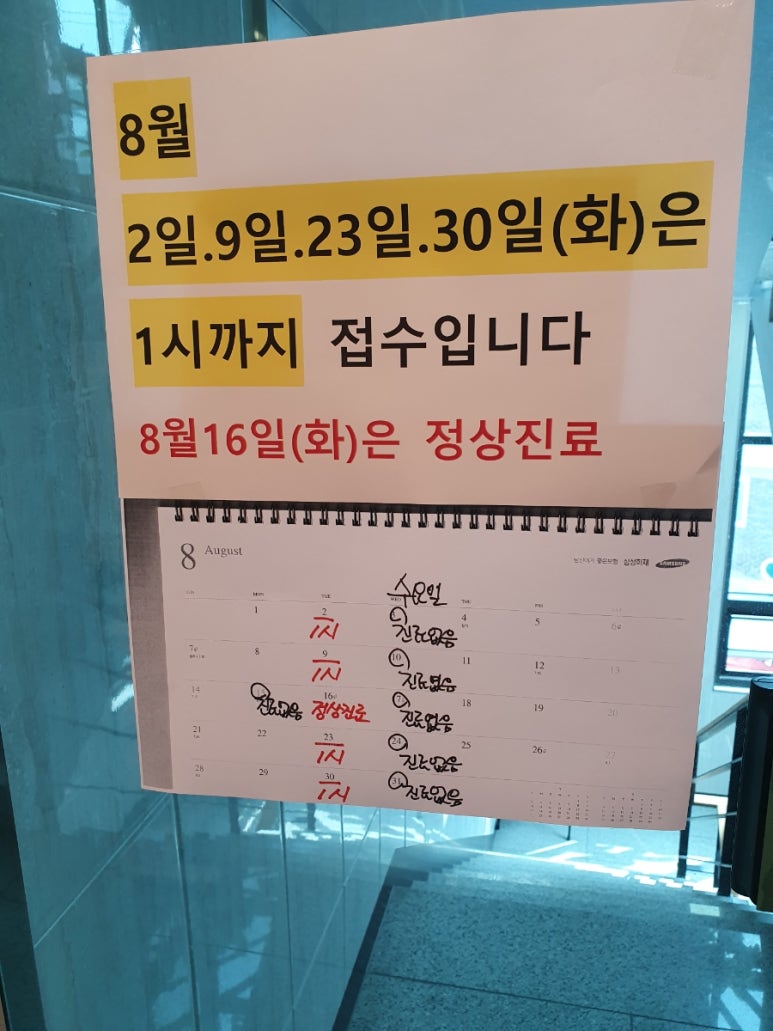 8월
2일.9일.23일.30일(화)은
1시까지 접수입니다
8월16일(화)은 정상진료
8 August
삼성화재 SAMSUNG
수요일
1 2 3 4 5 6
1시 진료없음
7 8 9 10 11 12 13
1시 진료없음
14 15 16 17 18 19 20
진료없음 정상진료 진료없음
21 22 23 24 25 26 27
1시 진료없음
28 29 30 31
1시 진료없음